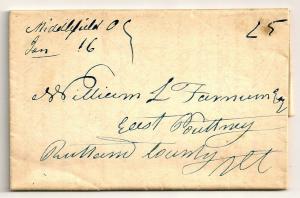 Middlefield O
Jan 16
25
William L Farnum Esq
East Poultney
Rutland County
Vt